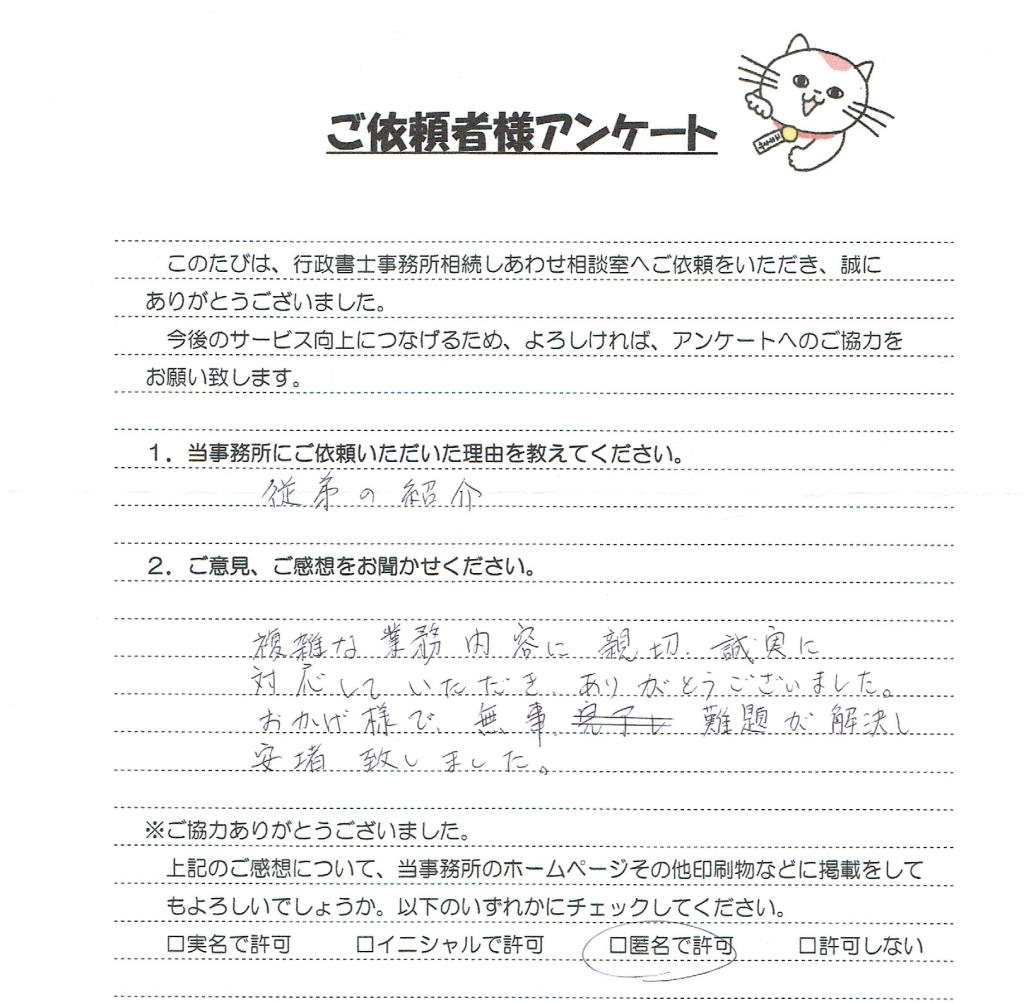 ご依頼者様アンケート
このたびは、行政書士事務所相続しあわせ相談室へご依頼をいただき、誠に
ありがとうございました。
今後のサービス向上につなげるため、よろしければ、アンケートへのご協力を
お願い致します。
１．当事務所にご依頼いただいた理由を教えてください。
従弟の紹介
２．ご意見、ご感想をお聞かせください。
複雑な業務内容に親切、誠実に
対応していただき、ありがとうございました。
おかげ様で、無事、完了し 難題が解決し
安堵致しました。
※ご協力ありがとうございました。
上記のご感想について、当事務所のホームページその他印刷物などに掲載をして
もよろしいでしょうか。以下のいずれかにチェックしてください。
□実名で許可 □イニシャルで許可 □匿名で許可 □許可しない